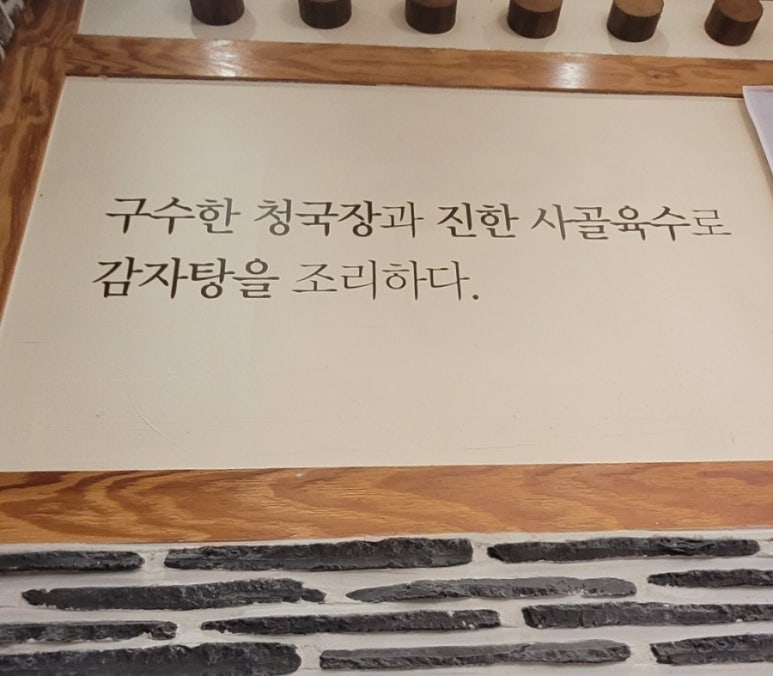 구수한 청국장과 진한 사골육수로
감자탕을 조리하다.